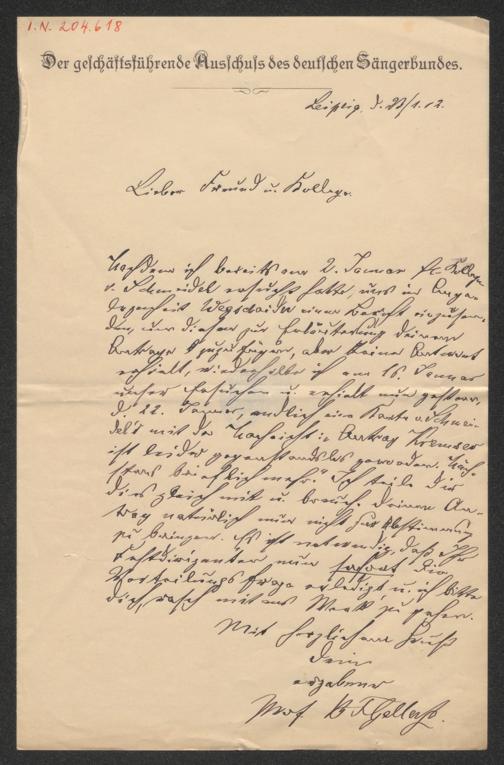 I.N. 204.618
Der geschäftsführende Ausschuss des deutschen Sängerbundes.
Leipzig, d. 23/1.12.
Lieber Freund u. Kollege.
Nachdem ich bereits am 2. Januar Hr. Kollegen
v. Schmeidel ersucht hatte, uns in Ange-
legenheit Wegscheider einen Bericht einzusen-
den, um diesen zur Erläuterung Deinem
Antrage zuzufügen, aber keine Antwort
erhielt, wiederholte ich am 16. Januar
unser Ersuchen u. erhielt nun gestern,
d. 22. Januar, endlich eine Karte v. Schmei-
del's mit der Nachricht: „Antrag Kremser
ist leider gegenstandslos geworden. Näch-
stens brieflich mehr." Ich teile Dir
dies gleich mit u. brauche Deinen An-
trag natürlich nun nicht zur Abstimmung
zu bringen. Es ist notwendig, daß Ihr
Festdirigenten nun sofort die
Verteilungsfrage erledigt u. ich bitte
Dich, rasch mit ans Werk zu gehen.
Mit herzlichem Gruß
Dein
ergebener
Prof.